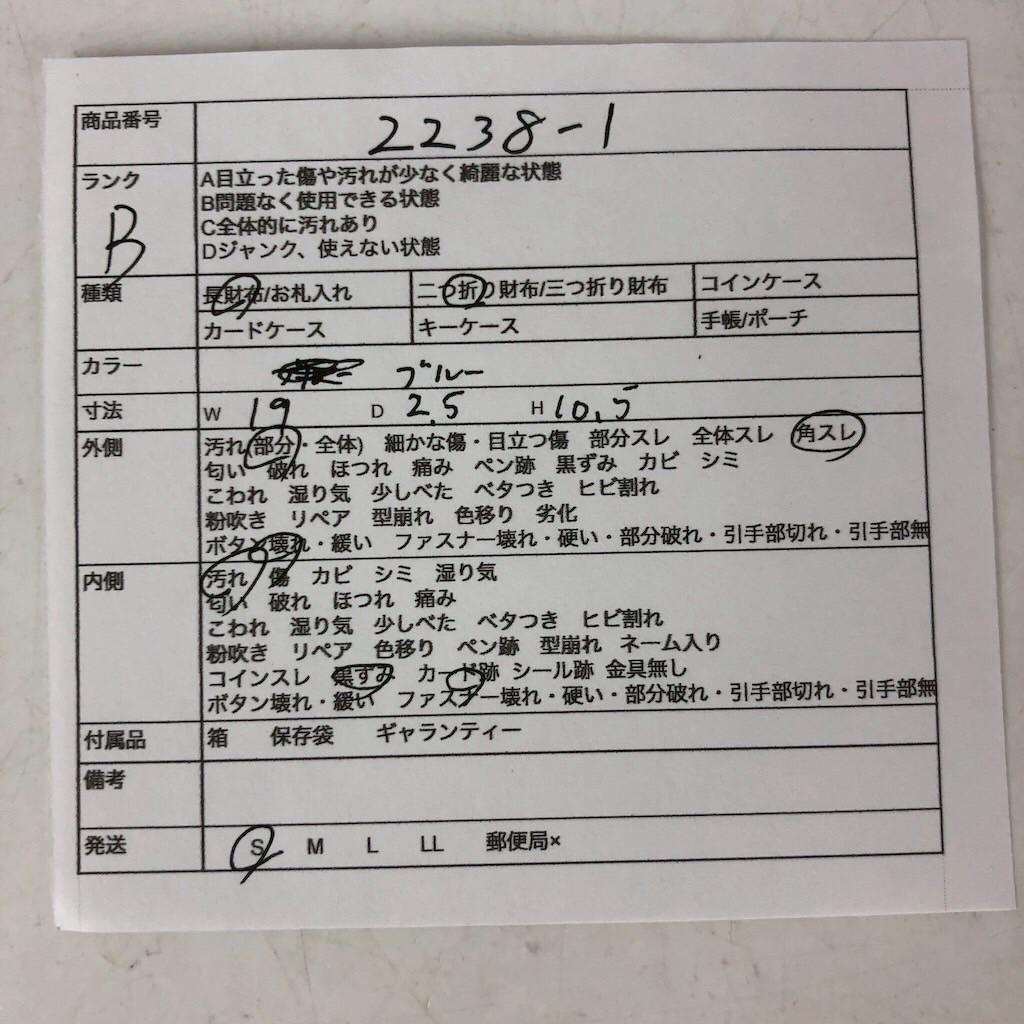 商品番号 2238-1
ランク B
A目立った傷や汚れが少なく綺麗な状態
B問題なく使用できる状態
C全体的に汚れあり
Dジャンク、使えない状態
種類 長財布/お札入れ 二つ折り財布/三つ折り財布 コインケース
カードケース キーケース 手帳/ポーチ
カラー ブルー
寸法 W 19 D 2.5 H 10.5
外側 汚れ(部分・全体) 細かな傷・目立つ傷 部分スレ 全体スレ 角スレ
匂い 破れ ほつれ 痛み ペン跡 黒ずみ カビ シミ
こわれ 湿り気 少しべた ベタつき ヒビ割れ
粉吹き リペア 型崩れ 色移り 劣化
ボタン壊れ・緩い ファスナー壊れ・硬い・部分破れ・引手部切れ・引手部無
内側 汚れ 傷 カビ シミ 湿り気
匂い 破れ ほつれ 痛み
こわれ 湿り気 少しべた ベタつき ヒビ割れ
粉吹き リペア 色移り ペン跡 型崩れ ネーム入り
コインスレ 黒ずみ カード跡 シール跡 金具無し
ボタン壊れ・緩い ファスナー壊れ・硬い・部分破れ・引手部切れ・引手部無
付属品 箱 保存袋 ギャランティー
備考
発送 S M L LL 郵便局×